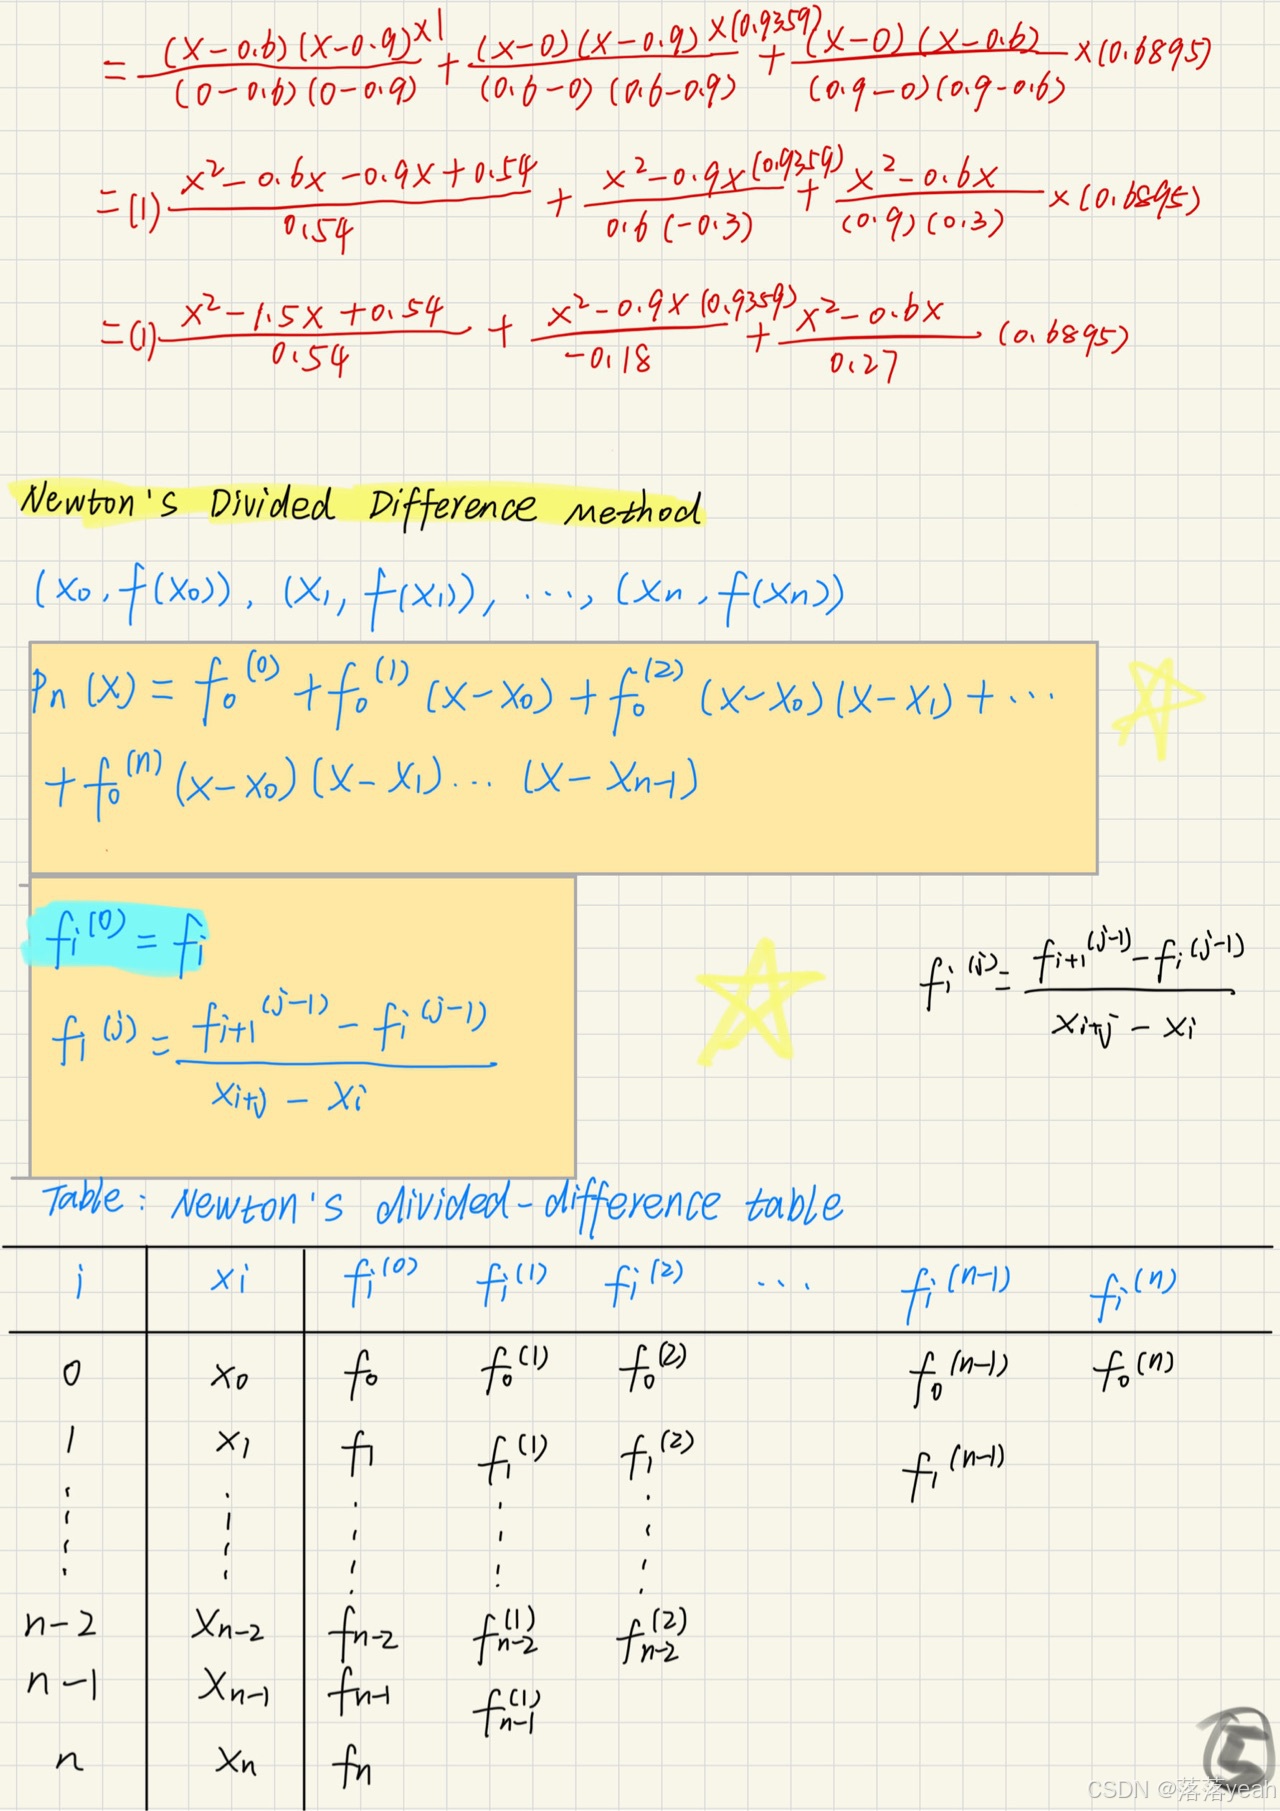 = (x-0.6)(x-0.9)×1 / (0-0.6)(0-0.9) + (x-0)(x-0.9)×(0.9359) / (0.6-0)(0.6-0.9) + (x-0)(x-0.6) / (0.9-0)(0.9-0.6) ×(0.6895)
= (1) x²-0.6x-0.9x+0.54 / 0.54 + x²-0.9x(0.9359) / 0.6(-0.3) + x²-0.6x / (0.9)(0.3) ×(0.6895)
= (1) x²-1.5x+0.54 / 0.54 + x²-0.9x(0.9359) / -0.18 + x²-0.6x / 0.27 (0.6895)
Newton's Divided Difference Method
(x₀, f(x₀)), (x₁, f(x₁)), ..., (xₙ, f(xₙ))
Pₙ(x) = f₀⁽⁰⁾ + f₀⁽¹⁾ (x-x₀) + f₀⁽²⁾ (x-x₀)(x-x₁) + ...
+ f₀⁽ⁿ⁾ (x-x₀)(x-x₁)... (x-xₙ₋₁)
fᵢ⁽⁰⁾ = fᵢ
fᵢ⁽ʲ⁾ = fᵢ₊₁⁽ʲ⁻¹⁾ - fᵢ⁽ʲ⁻¹⁾ / xᵢ₊ⱼ - xᵢ
fᵢ⁽ʲ⁾ = fᵢ₊₁⁽ʲ⁻¹⁾ - fᵢ⁽ʲ⁻¹⁾ / xᵢ₊ⱼ - xᵢ
Table: Newton's divided-difference table
i xᵢ fᵢ⁽⁰⁾ fᵢ⁽¹⁾ fᵢ⁽²⁾ ... fᵢ⁽ⁿ⁻¹⁾ fᵢ⁽ⁿ⁾
0 x₀ f₀ f₀⁽¹⁾ f₀⁽²⁾ f₀⁽ⁿ⁻¹⁾ f₀⁽ⁿ⁾
1 x₁ f₁ f₁⁽¹⁾ f₁⁽²⁾ f₁⁽ⁿ⁻¹⁾
⋮ ⋮ ⋮ ⋮ ⋮
n-2 xₙ₋₂ fₙ₋₂ fₙ₋₂⁽¹⁾ fₙ₋₂⁽²⁾
n-1 xₙ₋₁ fₙ₋₁ fₙ₋₁⁽¹⁾
n xₙ fₙ
5
CSDN @落落yeah